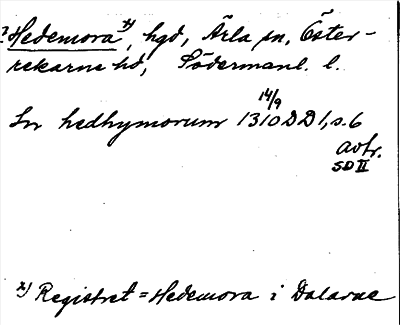 ?Hedemora x), hgd, Ärla sn, Öster-
rekarne hd, Södermanl. l.
In hedhymorum 14/9 1310 DD 1, s. 6
avtr.
SD II
x) Registret = Hedemora i Dalarne